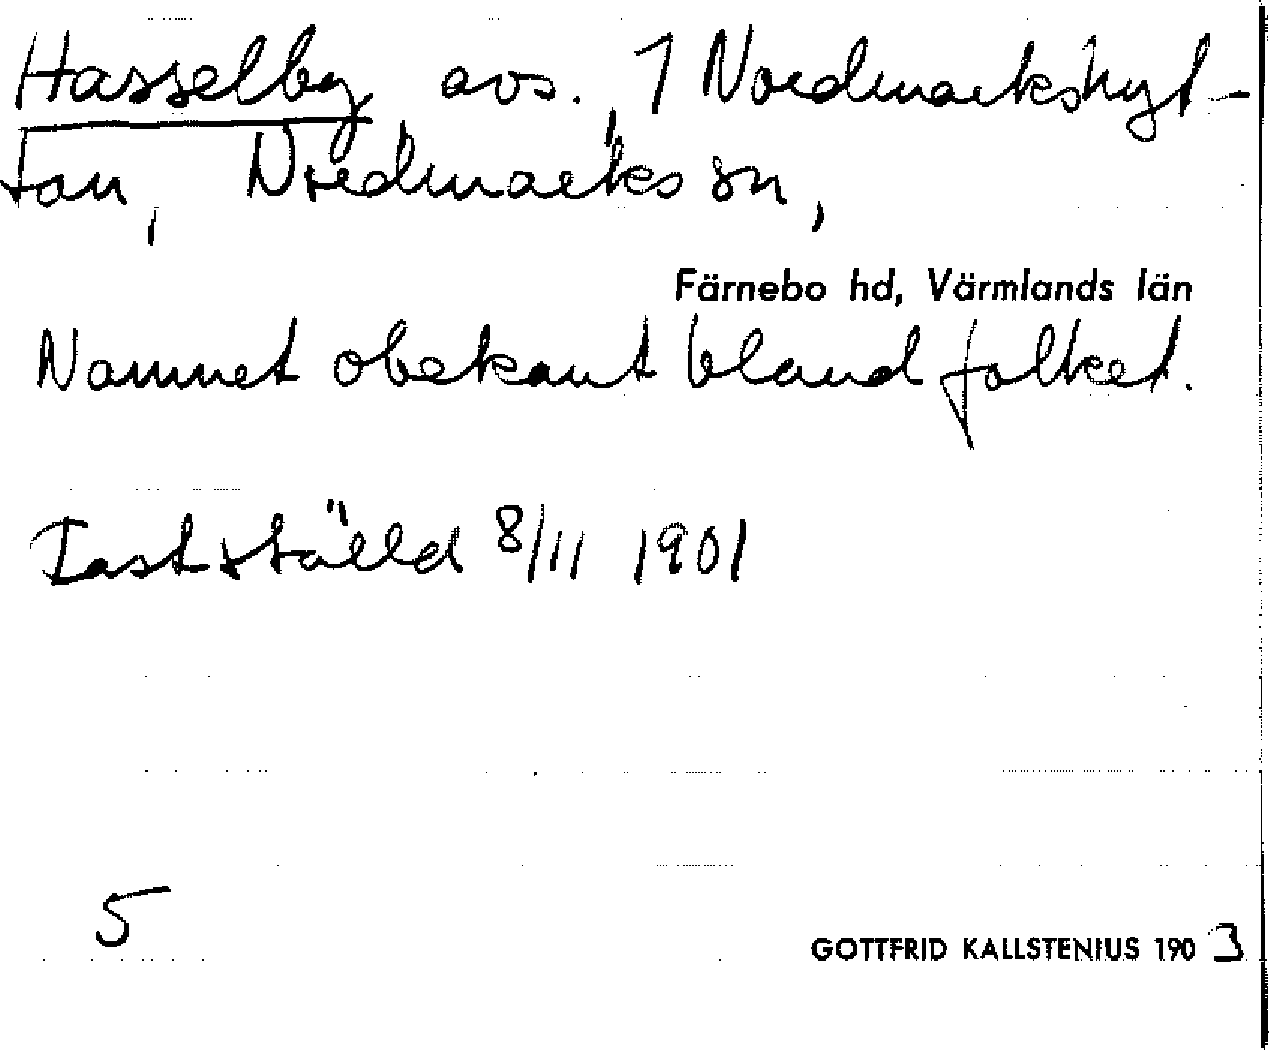 Hasselby avs. 1 Nordmarkshyt-
tan, Nordmarks sn,
Färnebo hd, Värmlands län
Namnet obekant bland folket.
Fastställd 8/11 1901
5
GOTTFRID KALLSTENIUS 1903